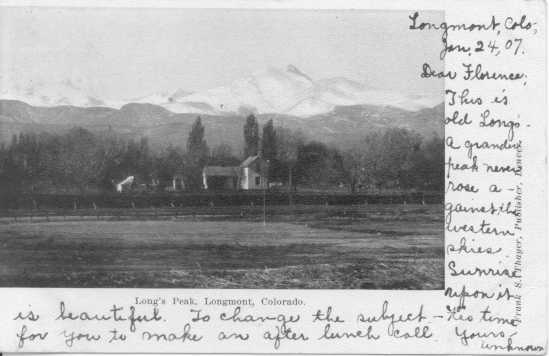 Longmont, Colo,
Jan, 24, 07.
Dear Florence,
This is
old Long's.
A grander
peak never
rose a-
gainst the
western
skies
Sunrise
upon it
is beautiful. To change the subject - 'tis time
for you to make an after lunch call. Yours -
unknown
Long's Peak, Longmont, Colorado.
Frank S. Thayer, Publisher, Denver.